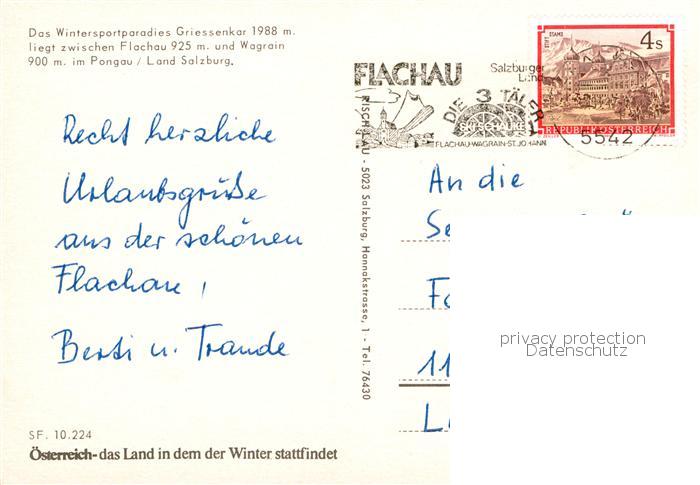 Das Wintersportparadies Griessenkar 1988 m.
liegt zwischen Flachau 925 m. und Wagrain
900 m. im Pongau / Land Salzburg.
Recht herzliche
Urlaubsgrüße
aus der schönen
Flachau,
Berti u. Traude
SF. 10.224
Österreich-das Land in dem der Winter stattfindet
RISCH-LAU - 5023 Salzburg, Hannakstrasse, 1 - Tel. 76430
FLACHAU
Salzburger
Land
DIE 3 TÄLER
SKISCHAUKEL
FLACHAU-WAGRAIN-ST.JOHANN
STIFT STAMS
4 S
REPUBLIK ÖSTERREICH
5542
An die
Se
Fa
11
L
privacy protection
Datenschutz